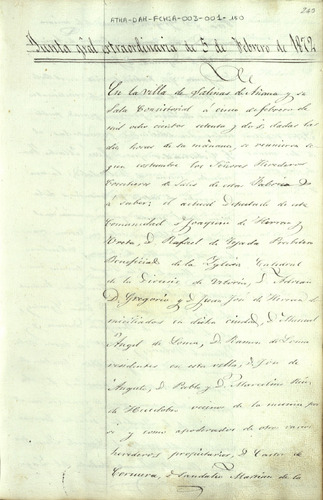 ATHA-DAH-FCHSA-003-001-150
203
Junta gral extraordinaria de 5 de Febrero de 1872
En la villa de Salinas de Añana y su
Sala Consistorial á cinco de febrero de
mil ocho cientos setenta y dos, dadas las
diez horas de su mañana, se reunieron
segun costumbre los Señores Herederos
de Salé de esta Fabrica
á saber: el actual Diputado de esta
Comunidad D Joaquin de Herran y
D. Rafael de Tejada
Beneficiado de la Yglesia Catedral
de la Diocesis de Vitoria, D. Adrian
D. Gregorio y D Juan José de Herran
domiciliados en dicha ciudad, D. Manuel
Angel de D. Ramon de
residentes en esta villa, D José de
Angulo, D. Pablo y D. Marcelino Ruiz
de vecinos de la misma por
si y como apoderados de otros varios
herederos propietarios, D Castor de
Cervera, D Martinez de la